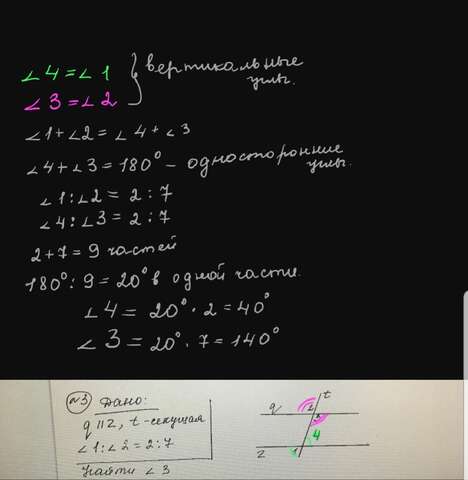 ∠4 = ∠1
∠3 = ∠2
вертикальные
углы.
∠1 + ∠2 = ∠4 + ∠3
∠4 + ∠3 = 180° – односторонние
углы.
∠1 : ∠2 = 2 : 7
∠4 : ∠3 = 2 : 7
2 + 7 = 9 частей
180° : 9 = 20° в одной части.
∠4 = 20° · 2 = 40°
∠3 = 20° · 7 = 140°
№3 Дано:
q || z, t - секущая
∠1 : ∠2 = 2 : 7
Найти ∠3
t
q 2
3
4
z 1